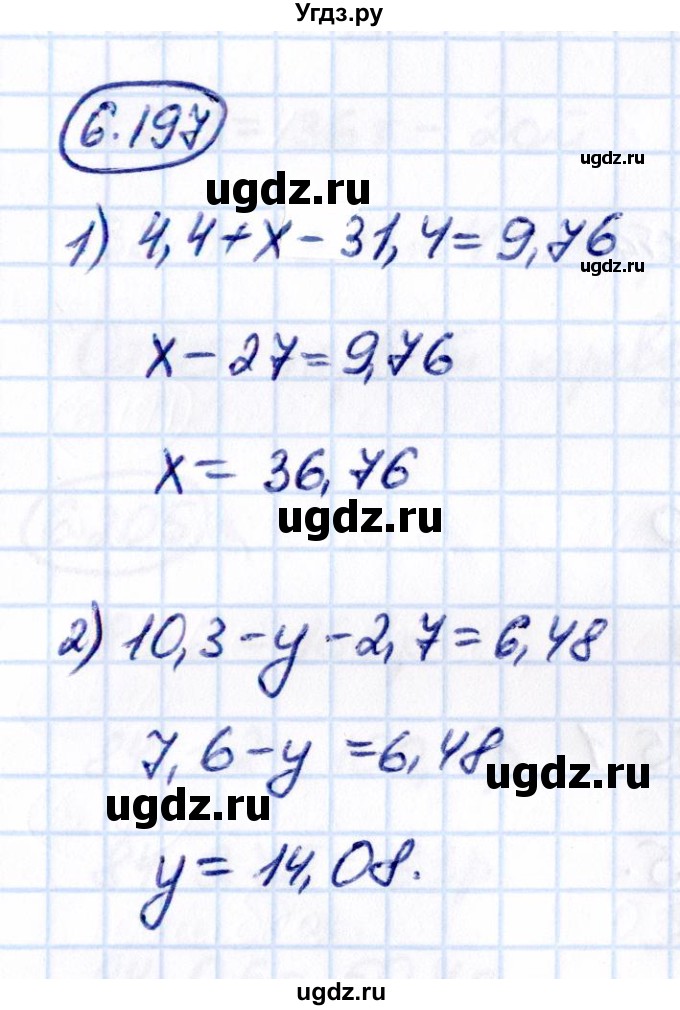 Угдз.ру
6.197
ugdz.ru
ugdz.ru
1) 4,4+x-31,4=9,76
ugdz.ru
x-27=9,76
x= 36,76
ugdz.ru
2) 10,3-y-2,7=6,48
7,6-y =6,48
ugdz.ru
ugdz.ru
y= 14,08.
ugdz.ru